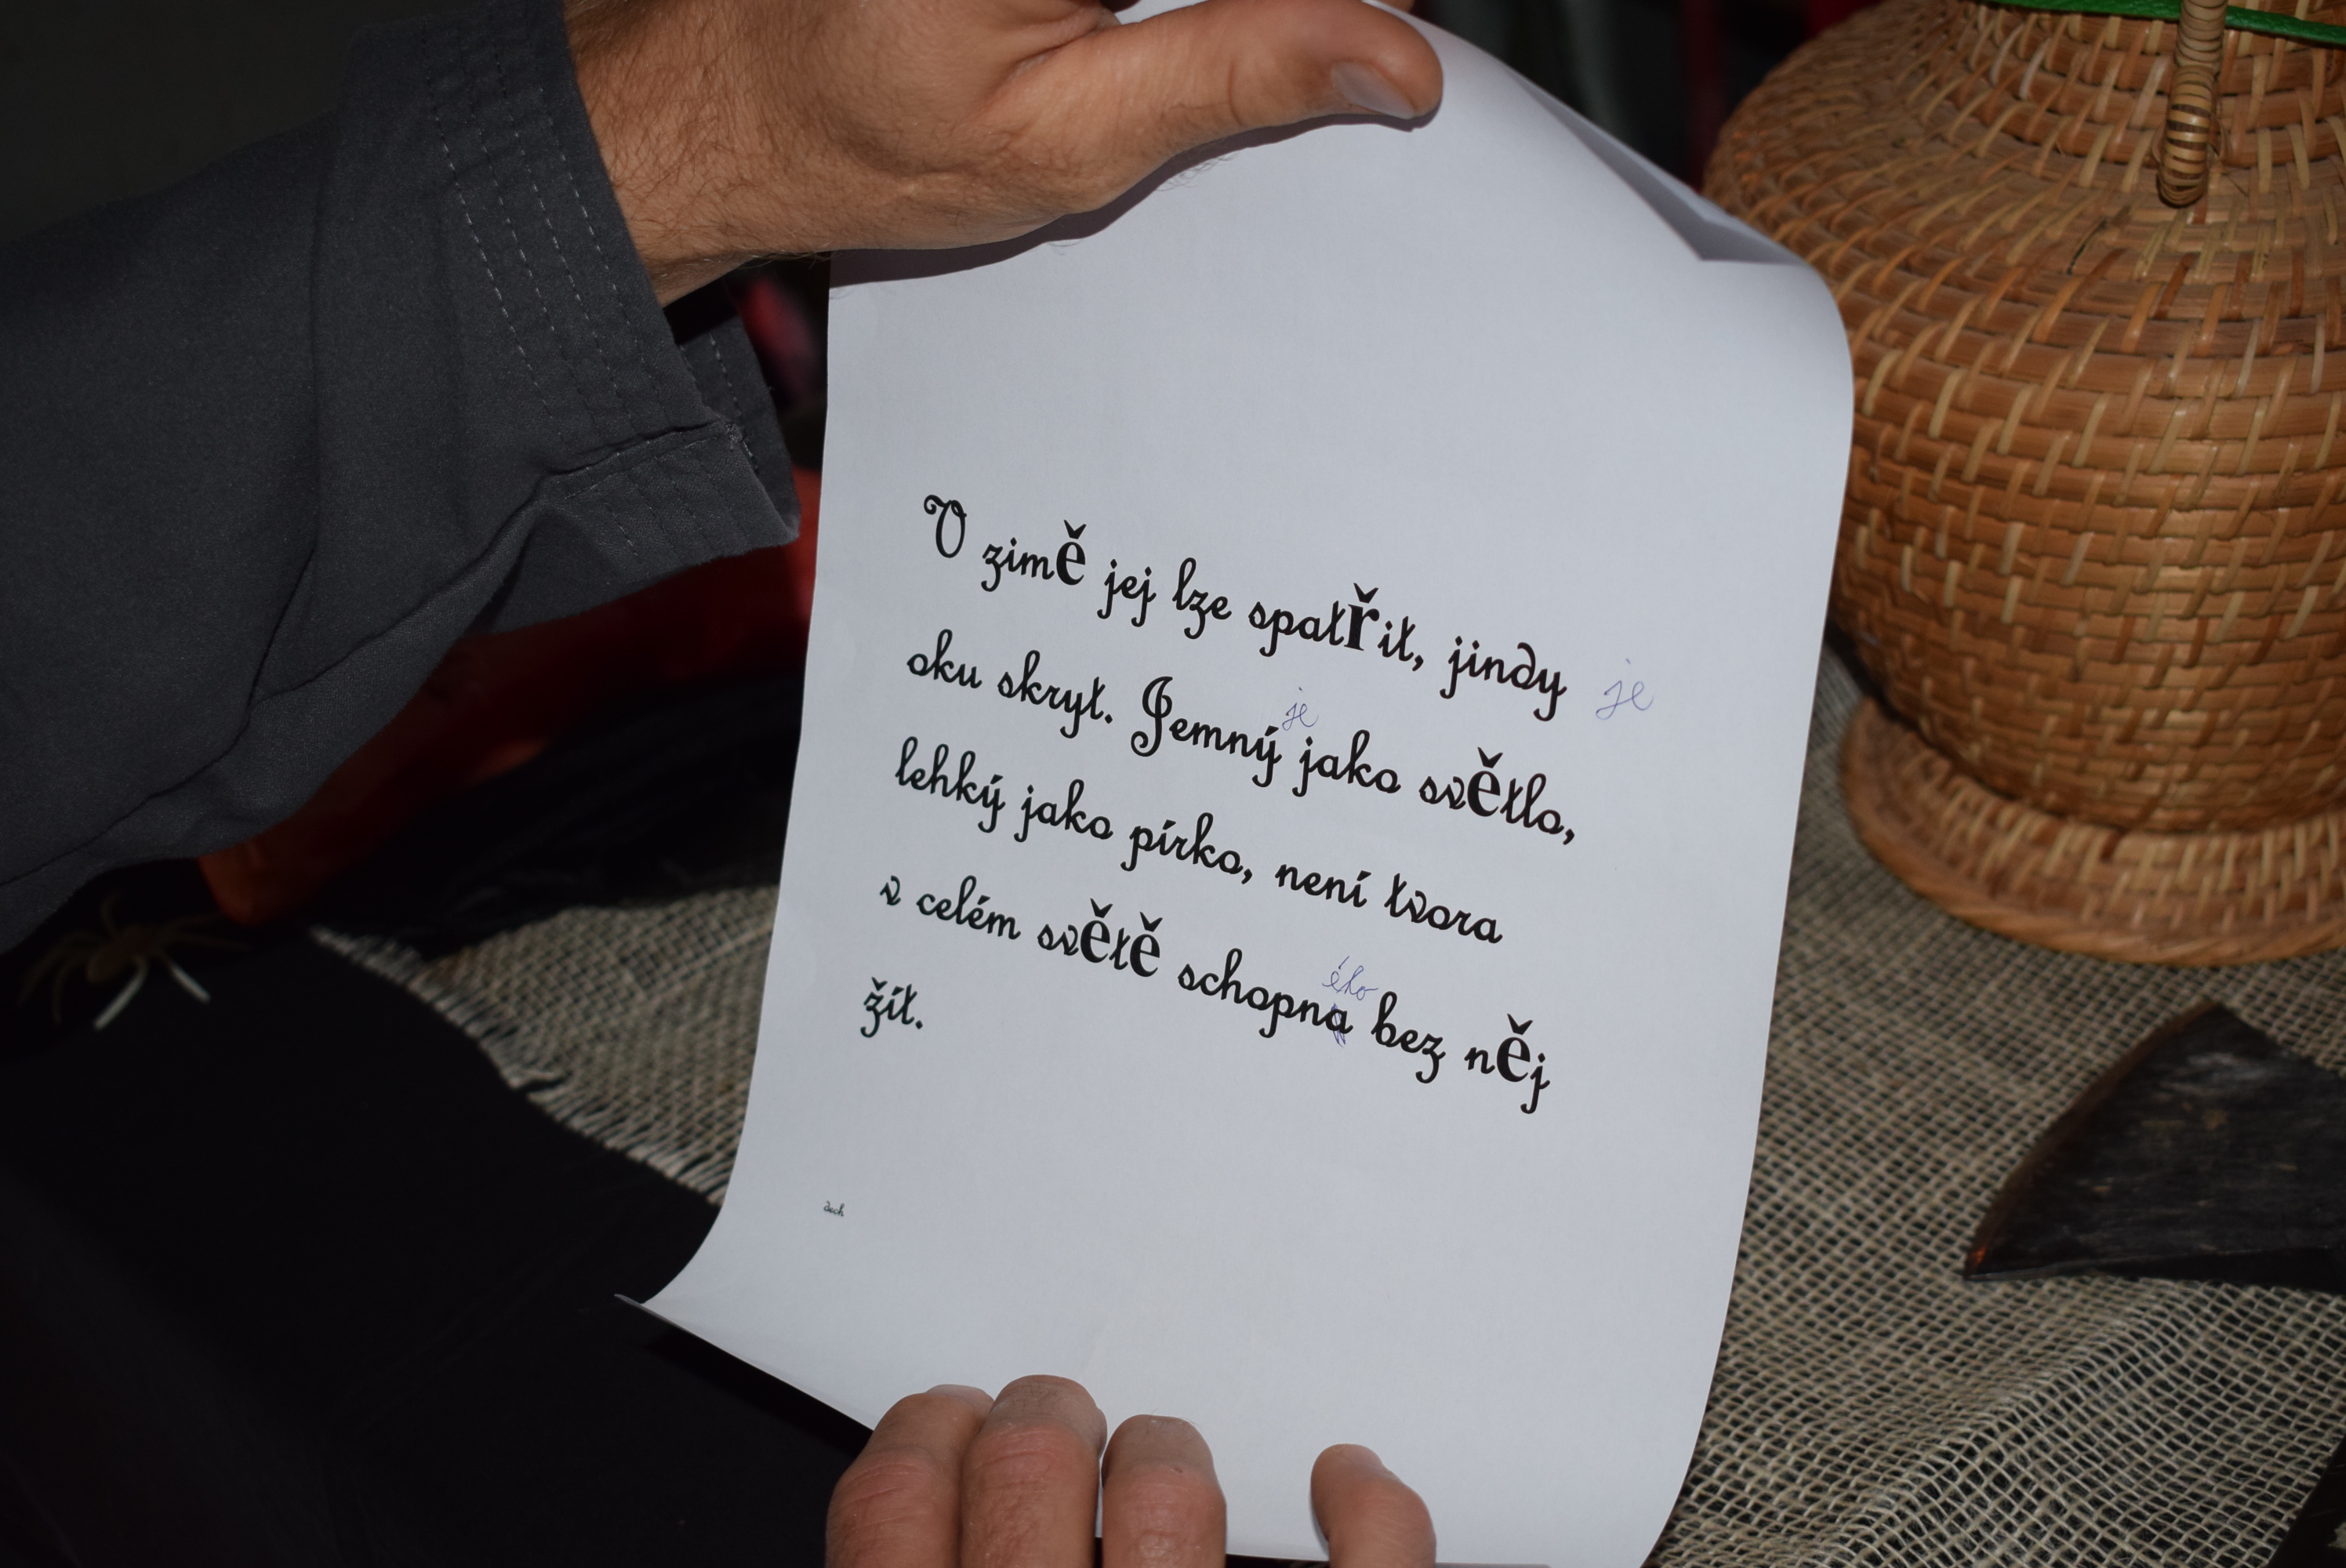 V zimě jej lze spatřit, jindy je
oku skryt. Jemný je jako světlo,
lehký jako pírko, není tvora
v celém světě schopna ého bez něj
žít.
dech